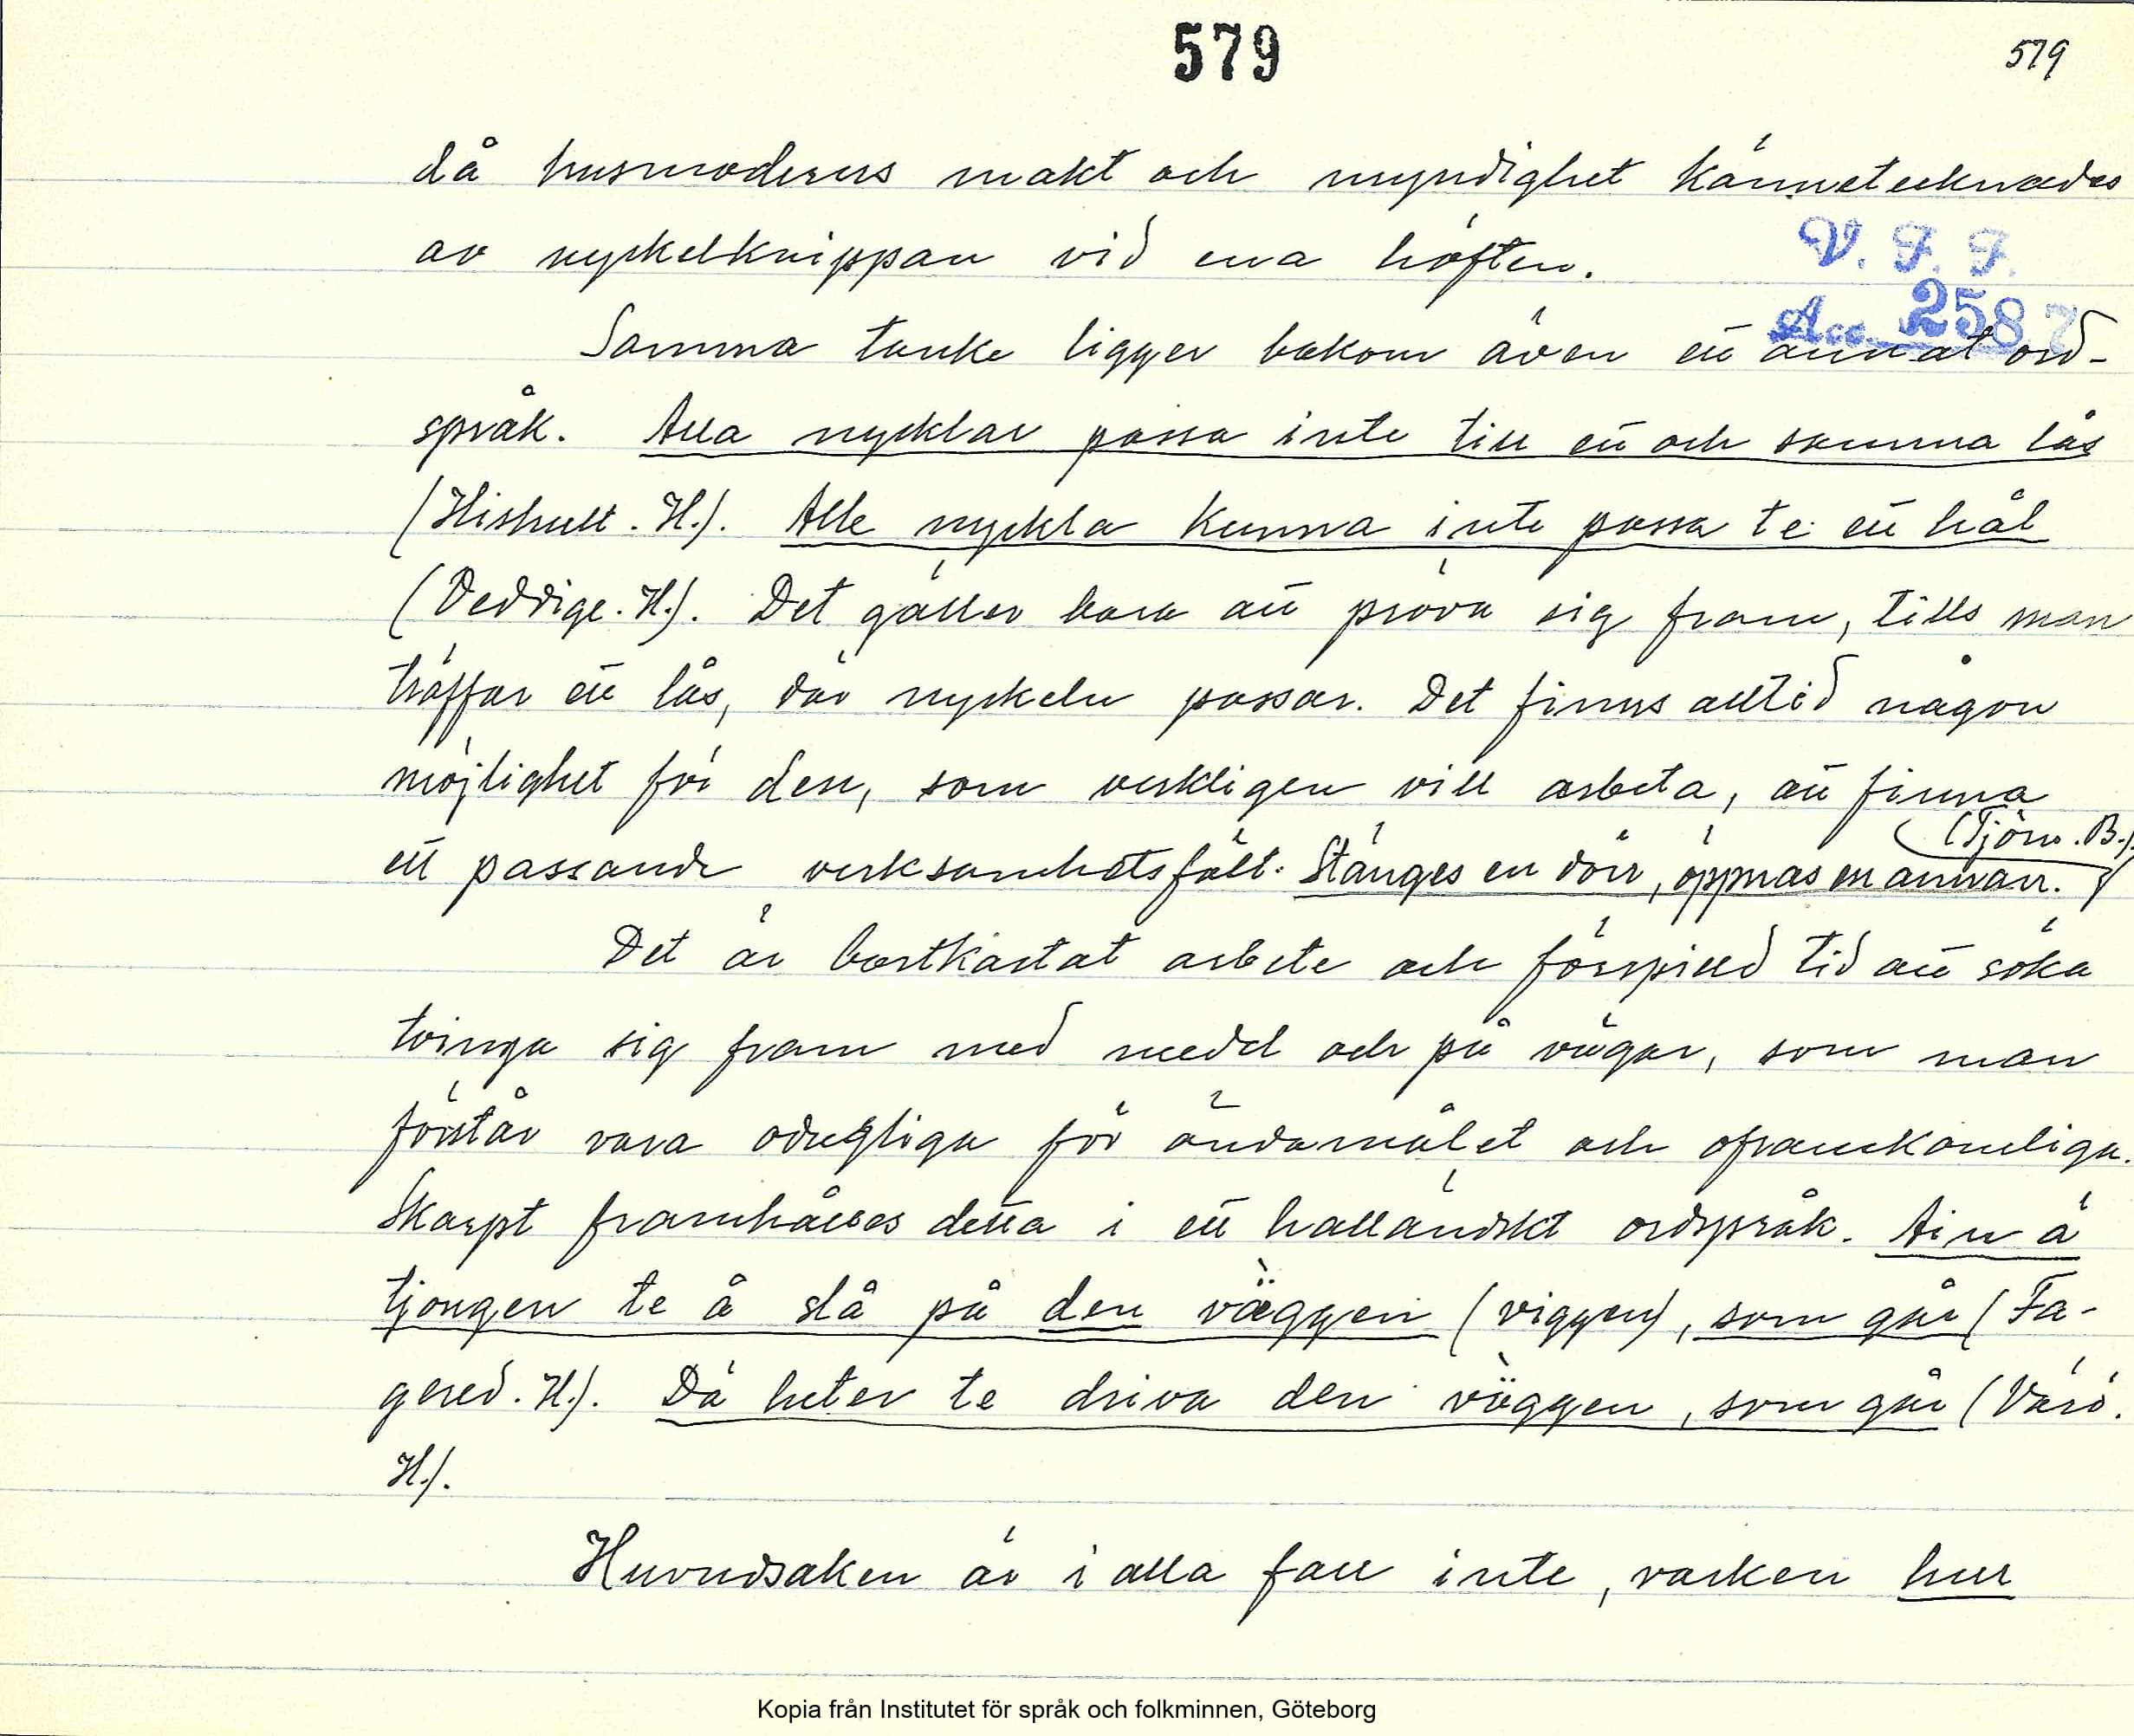 579
579
då husmoderns makt och myndighet kännetecknades
av nyckelknippan vid ena höften.
V. F. F.
Acc. 2587
Samma tanke ligger bakom även ett annat ord-
språk. Alla nycklar passa inte till ett och samma lås
(Hishult. H.). Alle nyckla kunna inte passa te ett hål
(Veddige. H.). Det gäller bara att pröva sig fram, tills man
träffar ett lås, där nyckeln passar. Det finns alltid någon
möjlighet för den, som verkligen vill arbeta, att finna
(Tjörn. B.).
ett passande verksamhetsfält. Stänges en dörr, öppnas en annan.
Det är bortkastat arbete och förspilld tid att söka
tvinga sig fram med medel och på vägar, som man
förstår vara odugliga för ändamålet och oframkomliga.
Skarpt framhålles detta i ett halländskt ordspråk. Ain ä
tjongen te å slå på den väggen (viggen), som går (Fa-
gered. H.). Dä heter te driva den väggen, som går (Värö.
H.).
Huvudsaken är i alla fall inte, varken hur
Kopia från Institutet för språk och folkminnen, Göteborg